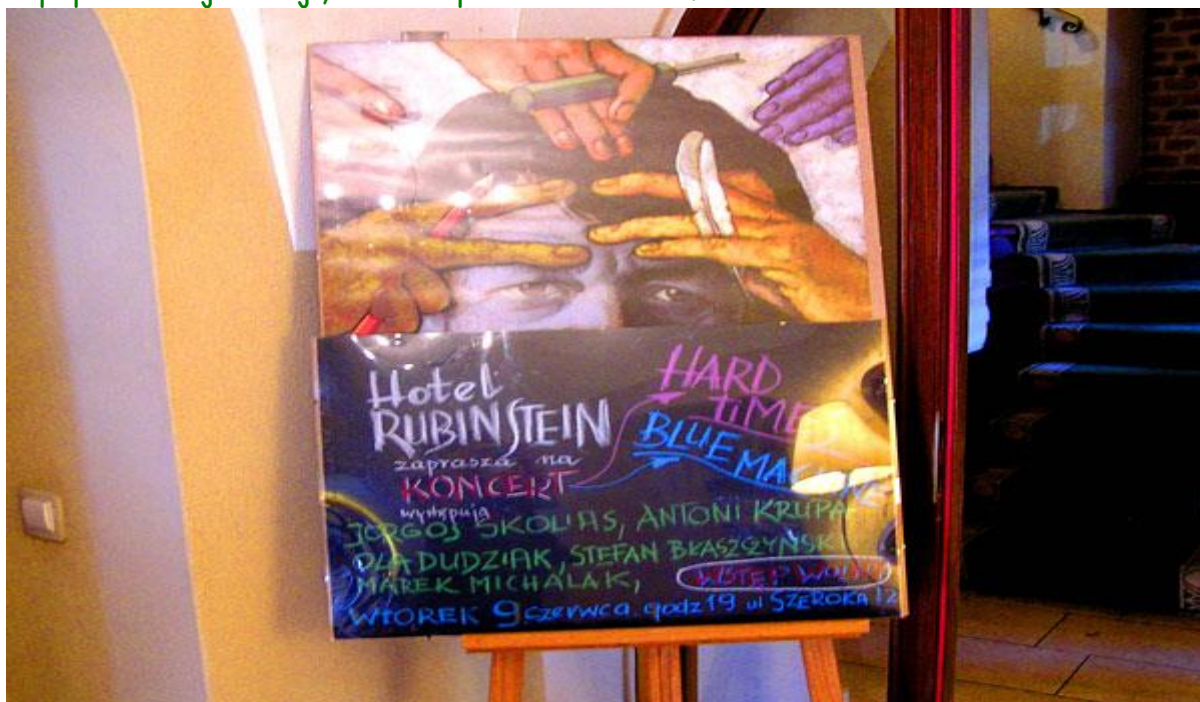 Hotel
RUBINSTEIN
zaprasza na
KONCERT
występują
HARD
TIMES
BLUE MACHINE
JORGOS SKOLIAS, ANTONI KRUPA
OLA DUDZIAK, STEFAN BŁASZCZYŃSKI
MAREK MICHALAK,
WSTĘP WOLNY
WTOREK 9 czerwca. godz 19 ul SZEROKA 12